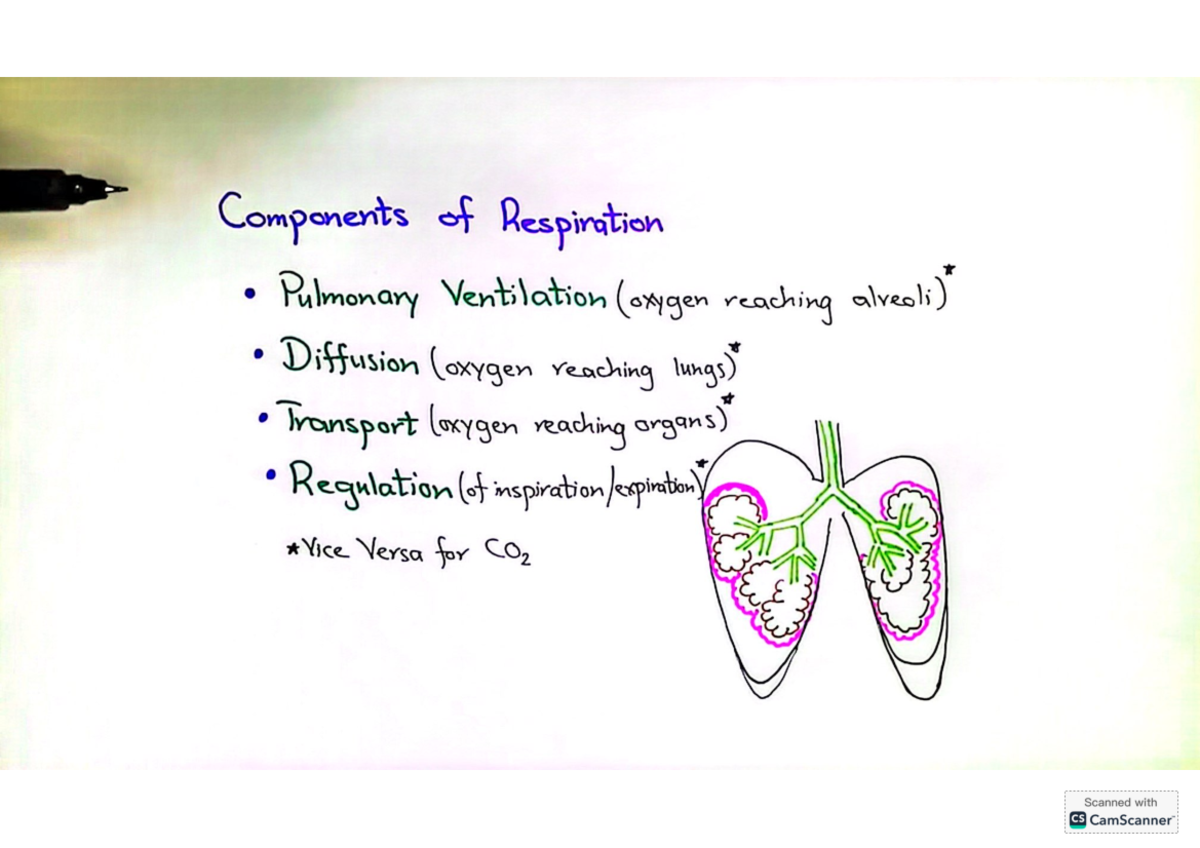 Components of Respiration
• Pulmonary Ventilation (oxygen reaching alveoli)*
• Diffusion (oxygen reaching lungs)*
• Transport (oxygen reaching organs)*
• Regulation (of inspiration/expiration)*
*Vice Versa for CO₂
Scanned with
CS CamScanner